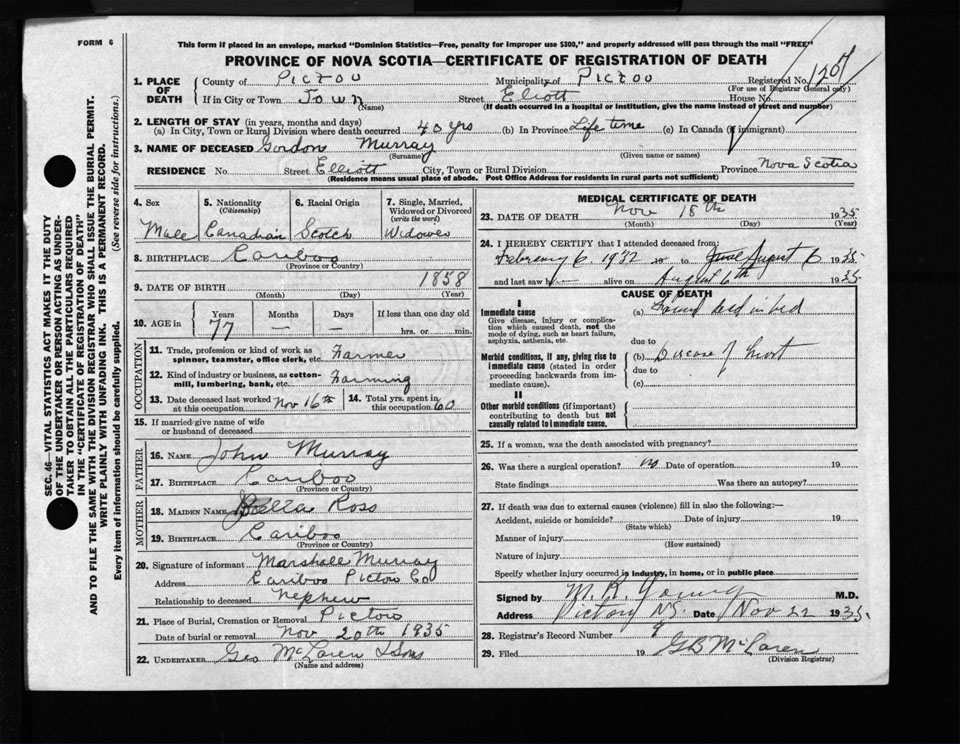 FORM 6
This form if placed in an envelope, marked "Dominion Statistics—Free, penalty for improper use $300," and properly addressed will pass through the mail "FREE"
PROVINCE OF NOVA SCOTIA—CERTIFICATE OF REGISTRATION OF DEATH
1. PLACE OF DEATH County of Pictou Municipality of Pictou Registered No. 1207
(For use of Registrar General only)
If in City or Town Town (Name) Street Eliott House No.
(If death occurred in a hospital or institution, give the name instead of street and number)
2. LENGTH OF STAY (in years, months and days)
(a) In City, Town or Rural Division where death occurred 40 yrs (b) In Province Life time (c) In Canada (if immigrant)
3. NAME OF DECEASED Gordon Murray
(Surname) (Given name or names)
RESIDENCE No. Street Elliott City, Town or Rural Division Province Nova Scotia
(Residence means usual place of abode. Post Office Address for residents in rural parts not sufficient)
4. Sex Male
5. Nationality (Citizenship) Canadian
6. Racial Origin Scotch
7. Single, Married, Widowed or Divorced (write the word) Widower
8. BIRTHPLACE Cariboo
(Province or Country)
9. DATE OF BIRTH 1858
(Month) (Day) (Year)
10. AGE in Years 77 Months — Days — If less than one day old hrs. or min.
OCCUPATION
11. Trade, profession or kind of work as spinner, teamster, office clerk, etc. Farmer
12. Kind of industry or business, as cotton-mill, lumbering, bank, etc. Farming
13. Date deceased last worked at this occupation Nov 16th
14. Total yrs. spent in this occupation 60
15. If married give name of wife or husband of deceased
FATHER
16. NAME John Murray
17. BIRTHPLACE Cariboo
(Province or Country)
MOTHER
18. MAIDEN NAME Bella Ross
19. BIRTHPLACE Cariboo
(Province or Country)
20. Signature of informant Marshall Murray
Address Cariboo Pictou Co
Relationship to deceased Nephew
21. Place of Burial, Cremation or Removal Pictou
Date of burial or removal Nov 20th 1935
22. UNDERTAKER Geo McLaren & Sons
(Name and address)
MEDICAL CERTIFICATE OF DEATH
23. DATE OF DEATH Nov 18th 1935
(Month) (Day) (Year)
24. I HEREBY CERTIFY that I attended deceased from:
February 6, 1932 to August 6 1935
and last saw h alive on August 6th 1935
CAUSE OF DEATH
I
Immediate cause
Give disease, injury or complication which caused death, not the mode of dying, such as heart failure, asphyxia, asthenia, etc.
(a) Found dead in bed
due to
Morbid conditions, if any, giving rise to immediate cause (stated in order proceeding backwards from immediate cause).
(b) Disease of heart
due to
(c)
II
Other morbid conditions (if important) contributing to death but not causally related to immediate cause.
25. If a woman, was the death associated with pregnancy?
26. Was there a surgical operation? no Date of operation 19
State findings Was there an autopsy?
27. If death was due to external causes (violence) fill in also the following:—
Accident, suicide or homicide? Date of injury 19
(State which)
Manner of injury
(How sustained)
Nature of injury
Specify whether injury occurred in industry, in home, or in public place
Signed by M. R. Young M.D.
Address N.S. Date Nov 22 1935
28. Registrar's Record Number 9
29. Filed 19 G B McLaren
(Division Registrar)
SEC. 46—VITAL STATISTICS ACT MAKES IT THE DUTY
OF THE UNDERTAKER OR PERSON ACTING AS UNDER-
TAKER TO OBTAIN ALL THE PARTICULARS REQUIRED
IN THE "CERTIFICATE OF REGISTRATION OF DEATH"
AND TO FILE THE SAME WITH THE DIVISION REGISTRAR WHO SHALL ISSUE THE BURIAL PERMIT.
WRITE PLAINLY WITH UNFADING INK. THIS IS A PERMANENT RECORD.
Every item of information should be carefully supplied. (See reverse side for instructions.)